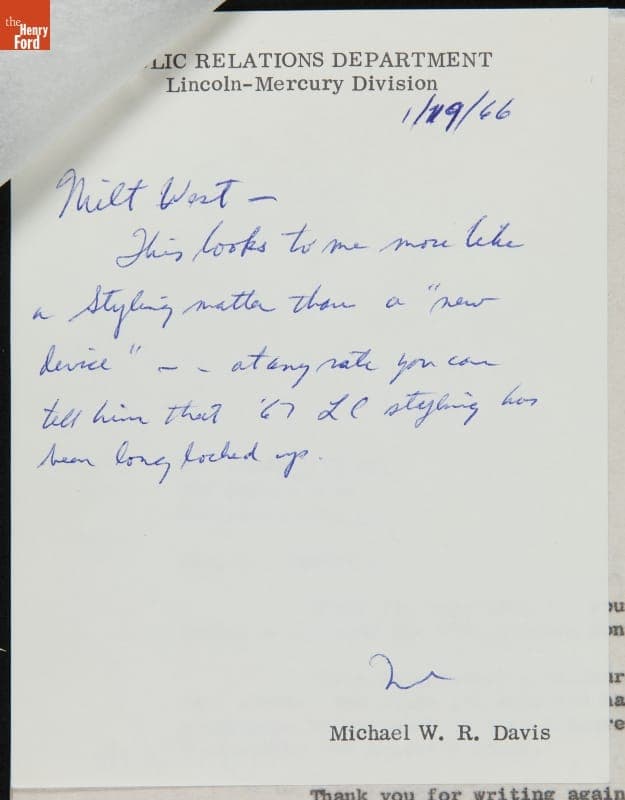 the
Henry
Ford
LIC RELATIONS DEPARTMENT
Lincoln-Mercury Division
1/19/66
Milt West —
This looks to me more like
a Styling matter than a "new
device" – – at any rate you can
tell him that '67 LC styling has
been long locked up.
Michael W. R. Davis
Thank you for writing again